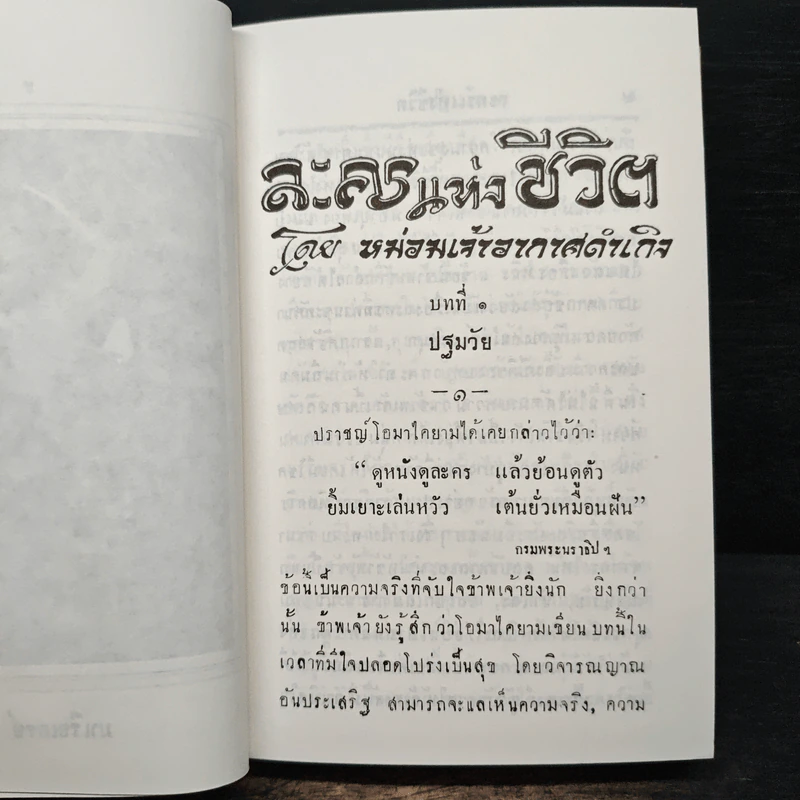 ละครแห่งชีวิต
โดย หม่อมเจ้าอากาศดำเกิง
บทที่ ๑
ปฐมวัย
—๑—
ปราชญ์โอมาไคยามได้เคยกล่าวไว้ว่า:
“ ดูหนังดูละคร แล้วย้อนดูตัว
ยิ้มเยาะเล่นหวัว เต้นยั่วเหมือนฝัน”
กรมพระนราธิป ฯ
ข้อนี้เป็นความจริงที่จับใจข้าพเจ้ายิ่งนัก ยิ่งกว่า
นั้น ข้าพเจ้ายังรู้สึกว่าโอมาไคยามเขียนบทนี้ใน
เวลาที่มีใจปลอดโปร่งเป็นสุข โดยวิจารณญาณ
อันประเสริฐ สามารถจะแลเห็นความจริง, ความ